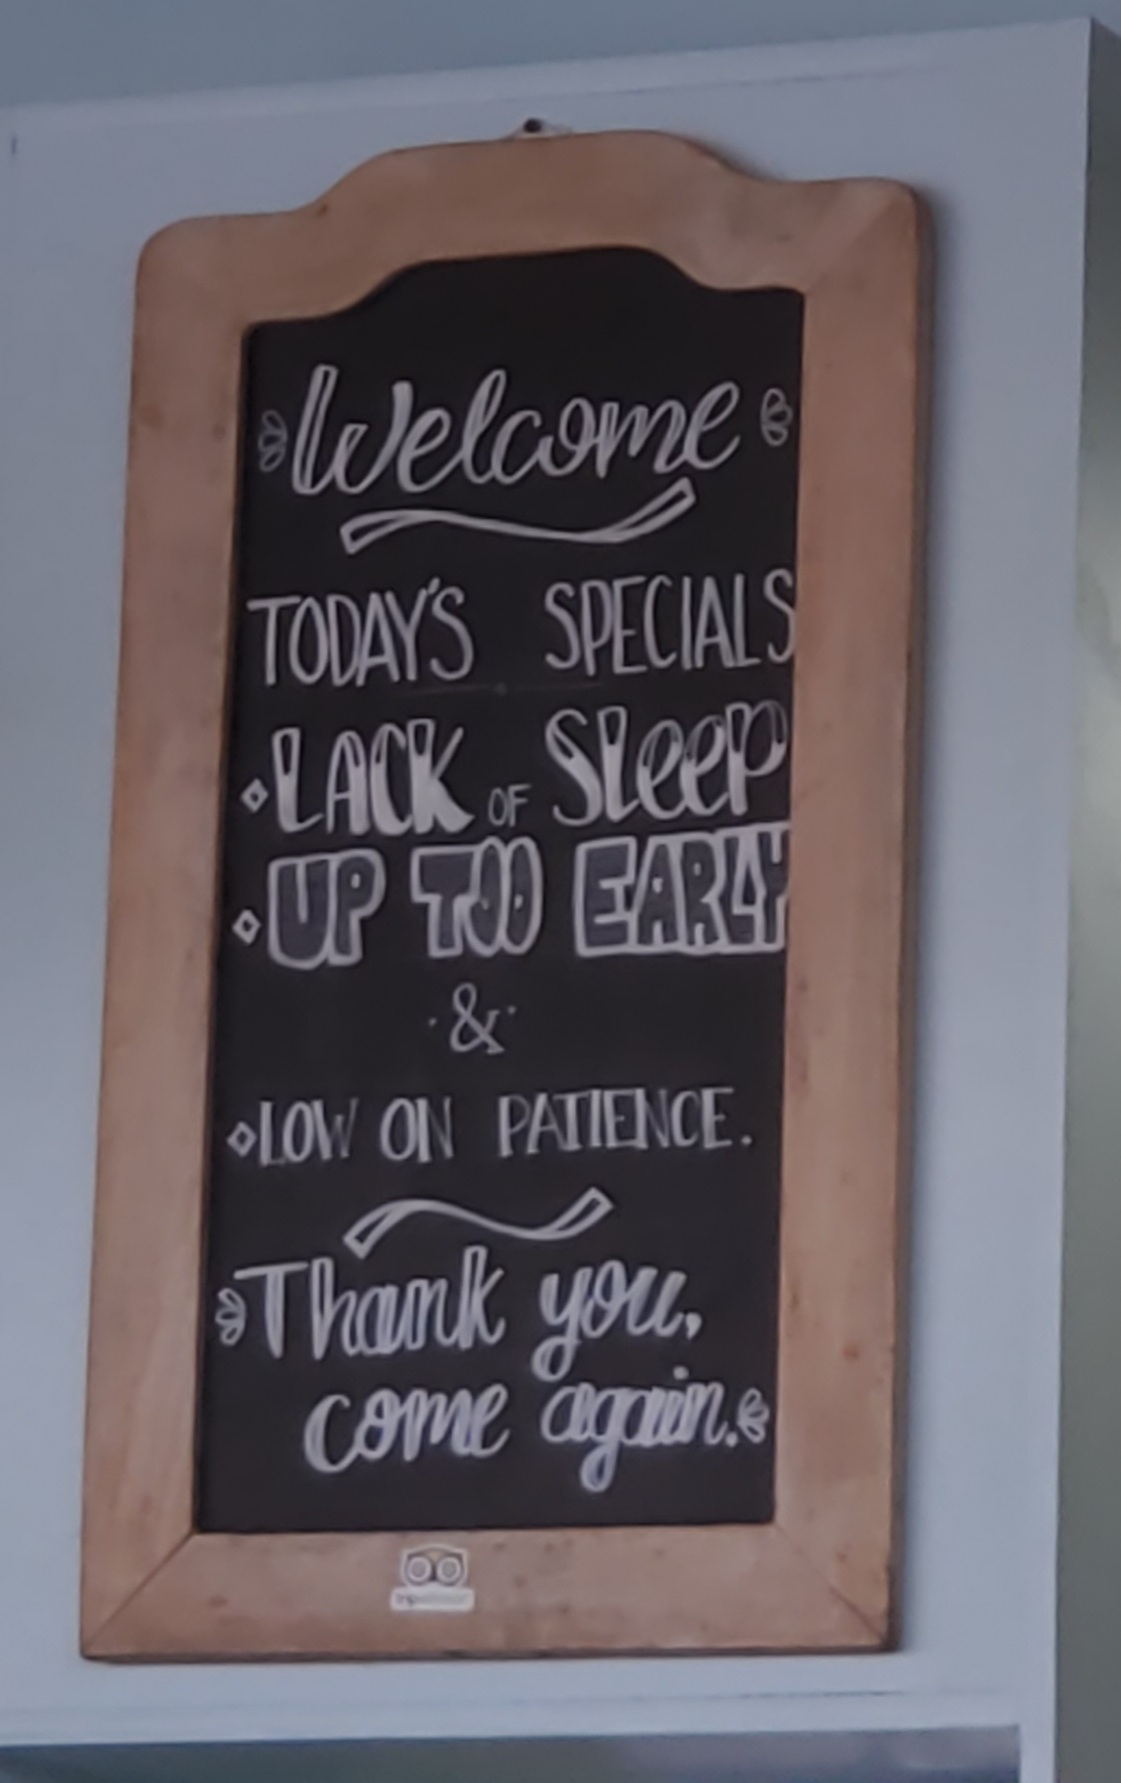 Welcome
TODAY'S SPECIALS
LACK OF SLeeP
UP TOO EARLY
&
LOW ON PATIENCE.
Thank you,
come again.
tripadvisor